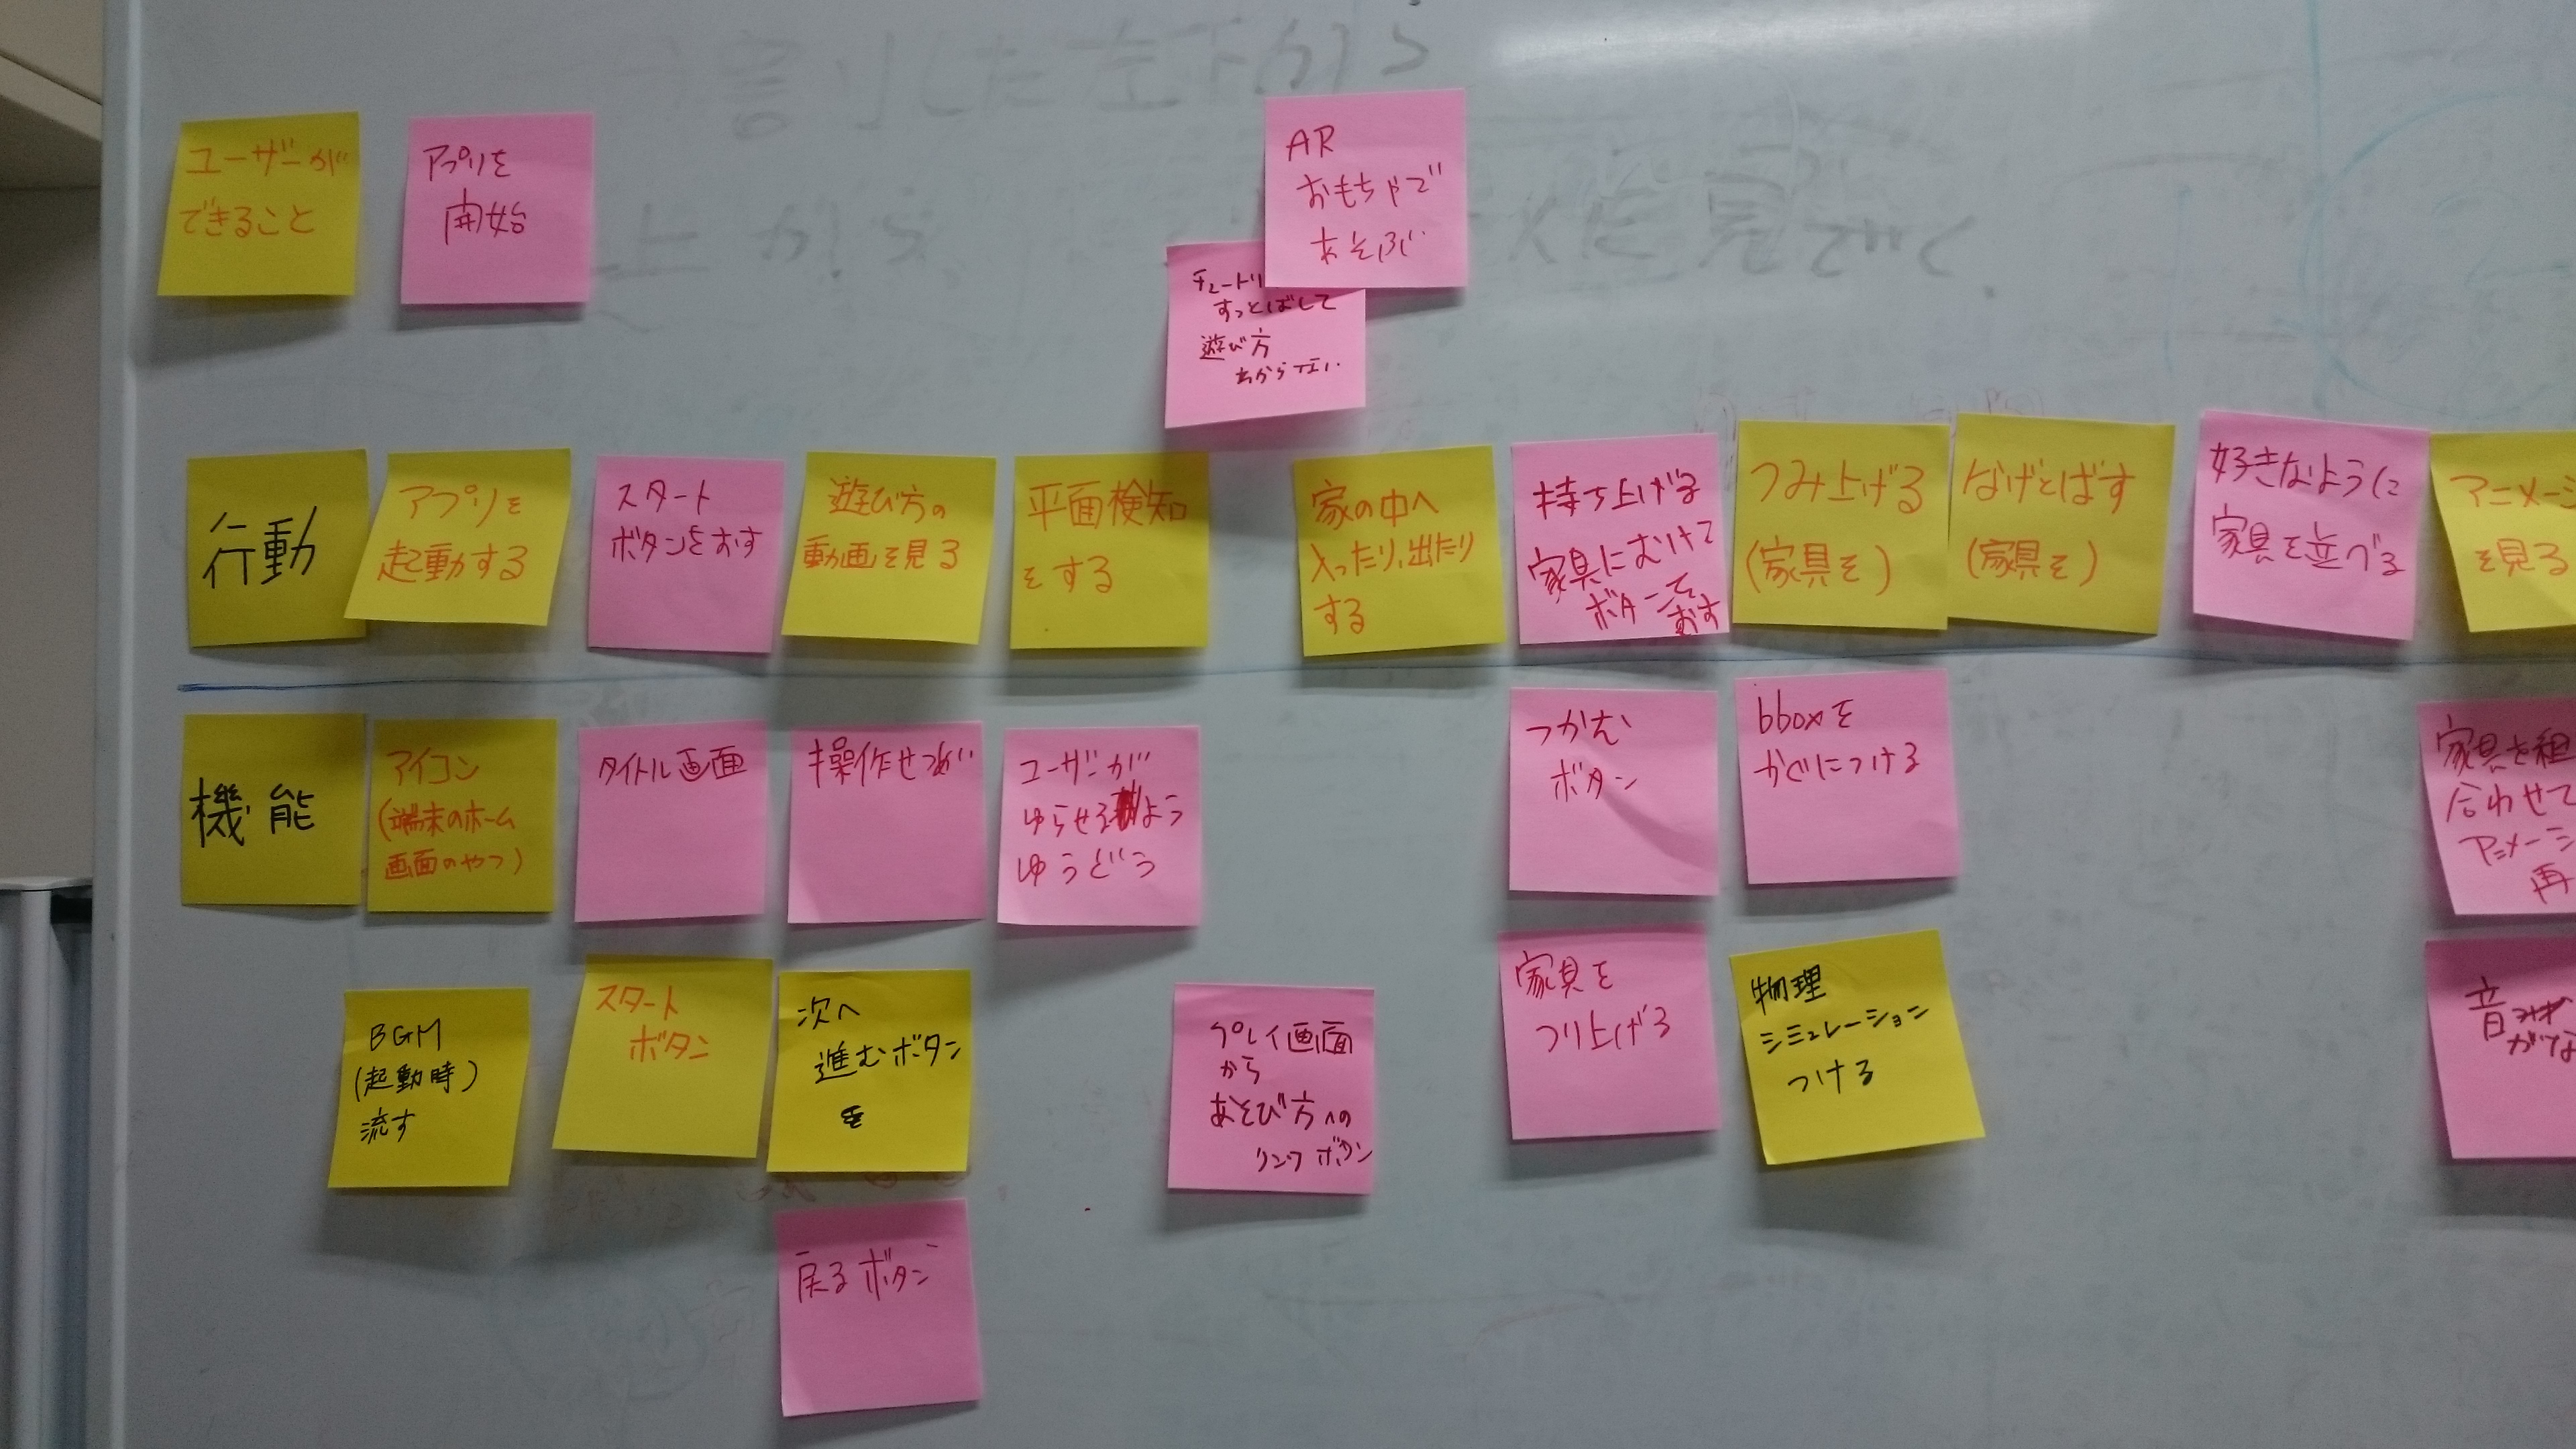 ユーザーが
できること
アプリを
開始
AR
おもちゃで
あそぶ
すっとばして
遊び方
わからない
行動
アプリを
起動する
スタート
ボタンをおす
遊び方の
動画を見る
平面検知
をする
家の中へ
入ったり、出たり
する
持ち上げる
家具にむけて
ボタンを
おす
つみ上げる
(家具を)
なげとばす
(家具を)
好きなように
家具を並べる
アニメー
を見る
機能
アイコン
(端末のホーム
画面のやつ)
タイトル画面
操作せつめい
ユーザーが
ゆらせるよう
ゆうどう
つかむ
ボタン
bboxを
かぐにつける
家具を組
合わせて
アニメーシ
再
BGM
(起動時)
流す
スタート
ボタン
次へ
進むボタン
を
プレイ画面
から
あそび方への
リンクボタン
家具を
つり上げる
物理
シミュレーション
つける
音
がな
戻るボタン